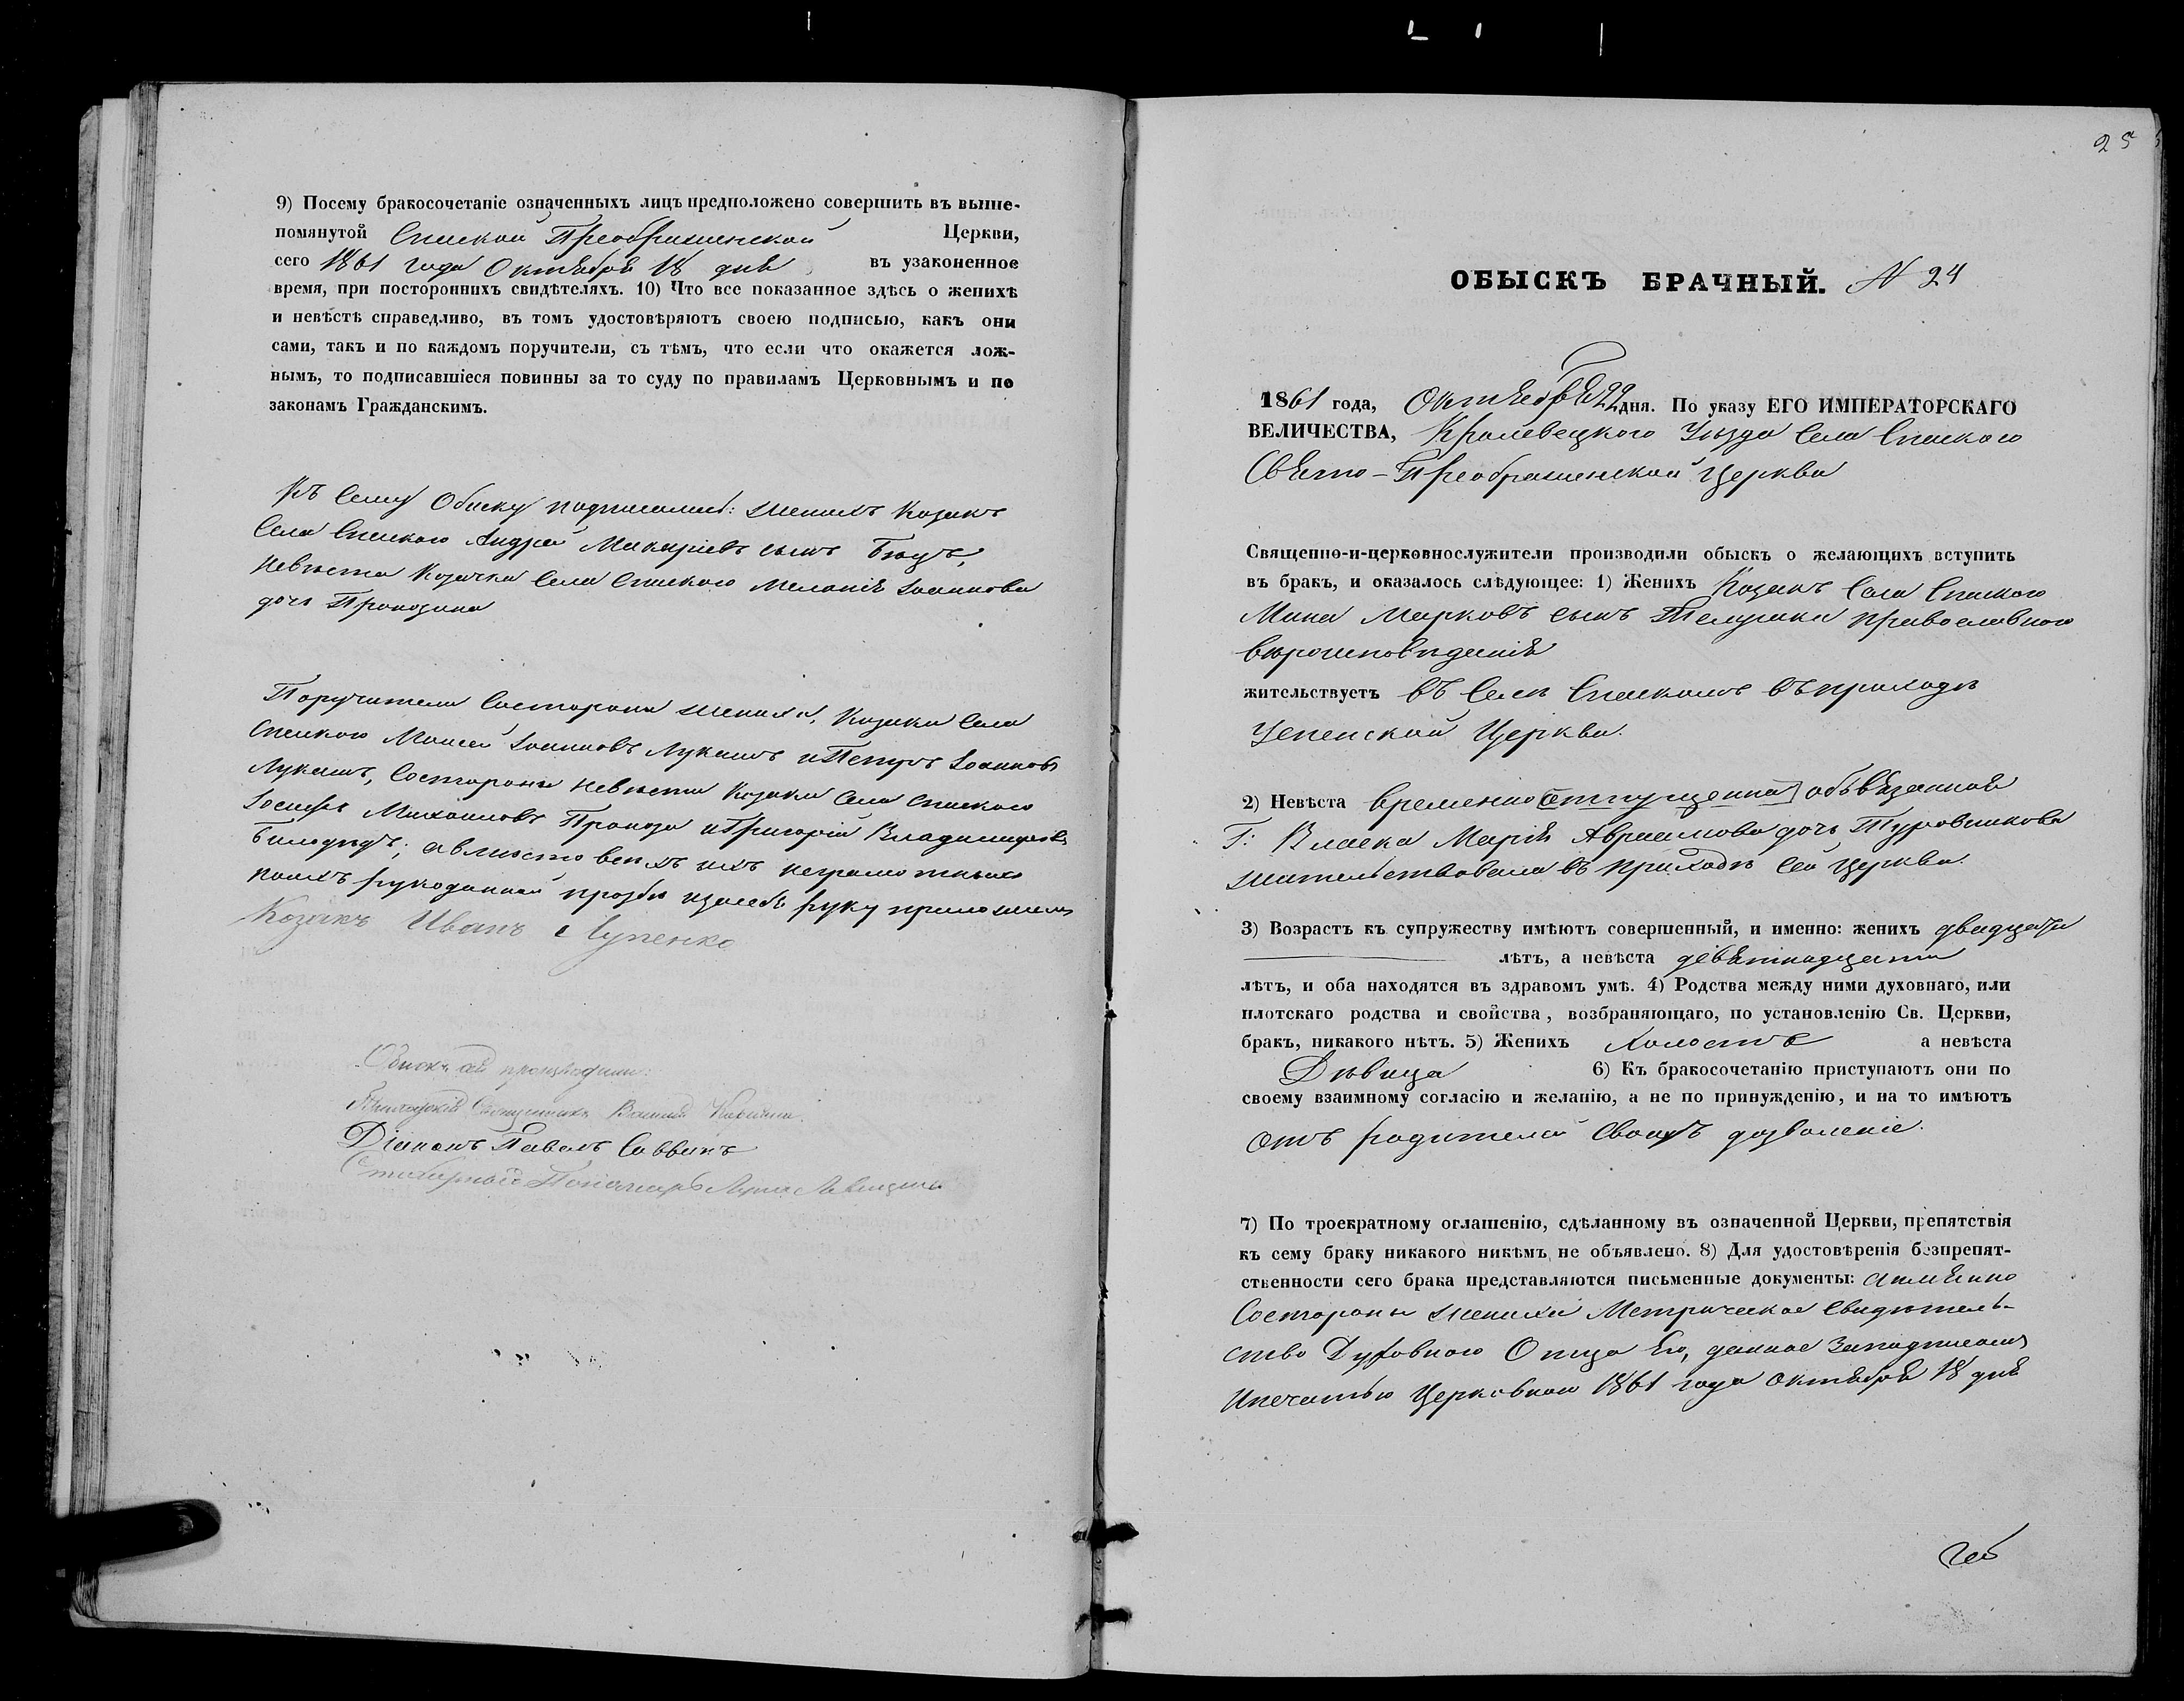 9) Посему бракосочетаніе означенныхъ лицъ предположено совершить въ выше-
помянутой Спаской Преображенской Церкви,
сего 1861 года Октября 18 дня въ узаконенное
время, при постороннихъ свидѣтеляхъ. 10) Что все показанное здѣсь о женихѣ
и невѣстѣ справедливо, въ томъ удостовѣряютъ своею подписью, какъ они
сами, такъ и по каждомъ поручители, съ тѣмъ, что если что окажется лож-
нымъ, то подписавшіеся повинны за то суду по правиламъ Церковнымъ и по
законамъ Гражданскимъ.
Къ Сему Обыску подписались: женихъ Козакъ
Села Спаского Андрей Макаріевъ сынъ
невѣста Козачка Села Спаского Меланія Іоаннова
дочь
Поручители Состороны жениха, Козаки Села
Спаского Моисей Іоанновъ Лукашъ и Петръ Іоанновъ
Лукашъ, Состороны невѣсты Козаки Села Спаского
Іосифъ Михаиловъ Прокоза и Григорій Владимировъ
Билодѣдъ; а вмѣсто всѣхъ ихъ неграмотныхъ
руку приложилъ
Козакъ Иванъ Лупенко
Обискъ сей производили:
Приходскій Священникъ Василій
Діаконъ Павелъ Саввинъ
Пономарь Лука
25
ОБЫСКЪ БРАЧНЫЙ. N 24
1861 года, Октября 22 дня. По указу ЕГО ИМПЕРАТОРСКАГО
ВЕЛИЧЕСТВА, Кролевецкого Уѣзда Села Спаского
Свято-Преображенской Церкви
Священно-и-церковнослужители производили обыскъ о желающихъ вступить
въ бракъ, и оказалось слѣдующее: 1) Женихъ Козакъ Села Спаского
Мина Марковъ сынъ Телушка православного
вѣроисповѣданія
жительствуетъ въ Селѣ Спаскомъ въ приходѣ
Успенской Церкви.
2) Невѣста временно отпущенна обязанная
Г: Власка Марія Авраамова дочь Туровникова
жительствовала въ приходѣ сей Церкви.
3) Возрастъ къ супружеству имѣютъ совершенный, и именно: женихъ двадцати
лѣтъ, а невѣста девятнадцати
лѣтъ, и оба находятся въ здравомъ умѣ. 4) Родства между ними духовнаго, или
плотскаго родства и свойства, возбраняющаго, по установленію Св. Церкви,
бракъ, никакого нѣтъ. 5) Женихъ Холостъ а невѣста
Дѣвица 6) Къ бракосочетанію приступаютъ они по
своему взаимному согласію и желанію, а не по принужденію, и на то имѣютъ
отъ родителей своихъ дозволеніе.
7) По троекратному оглашенію, сдѣланному въ означенной Церкви, препятствія
къ сему браку никакого никѣмъ не объявлено. 8) Для удостовѣренія безпрепят-
ственности сего брака представляются письменные документы: а именно
Состороны жениха Метрическое Свидѣтель-
ство Духовного Отца Его, данное Заподписомъ
Ипечатью Церковною 1861 года Октября 18 дня